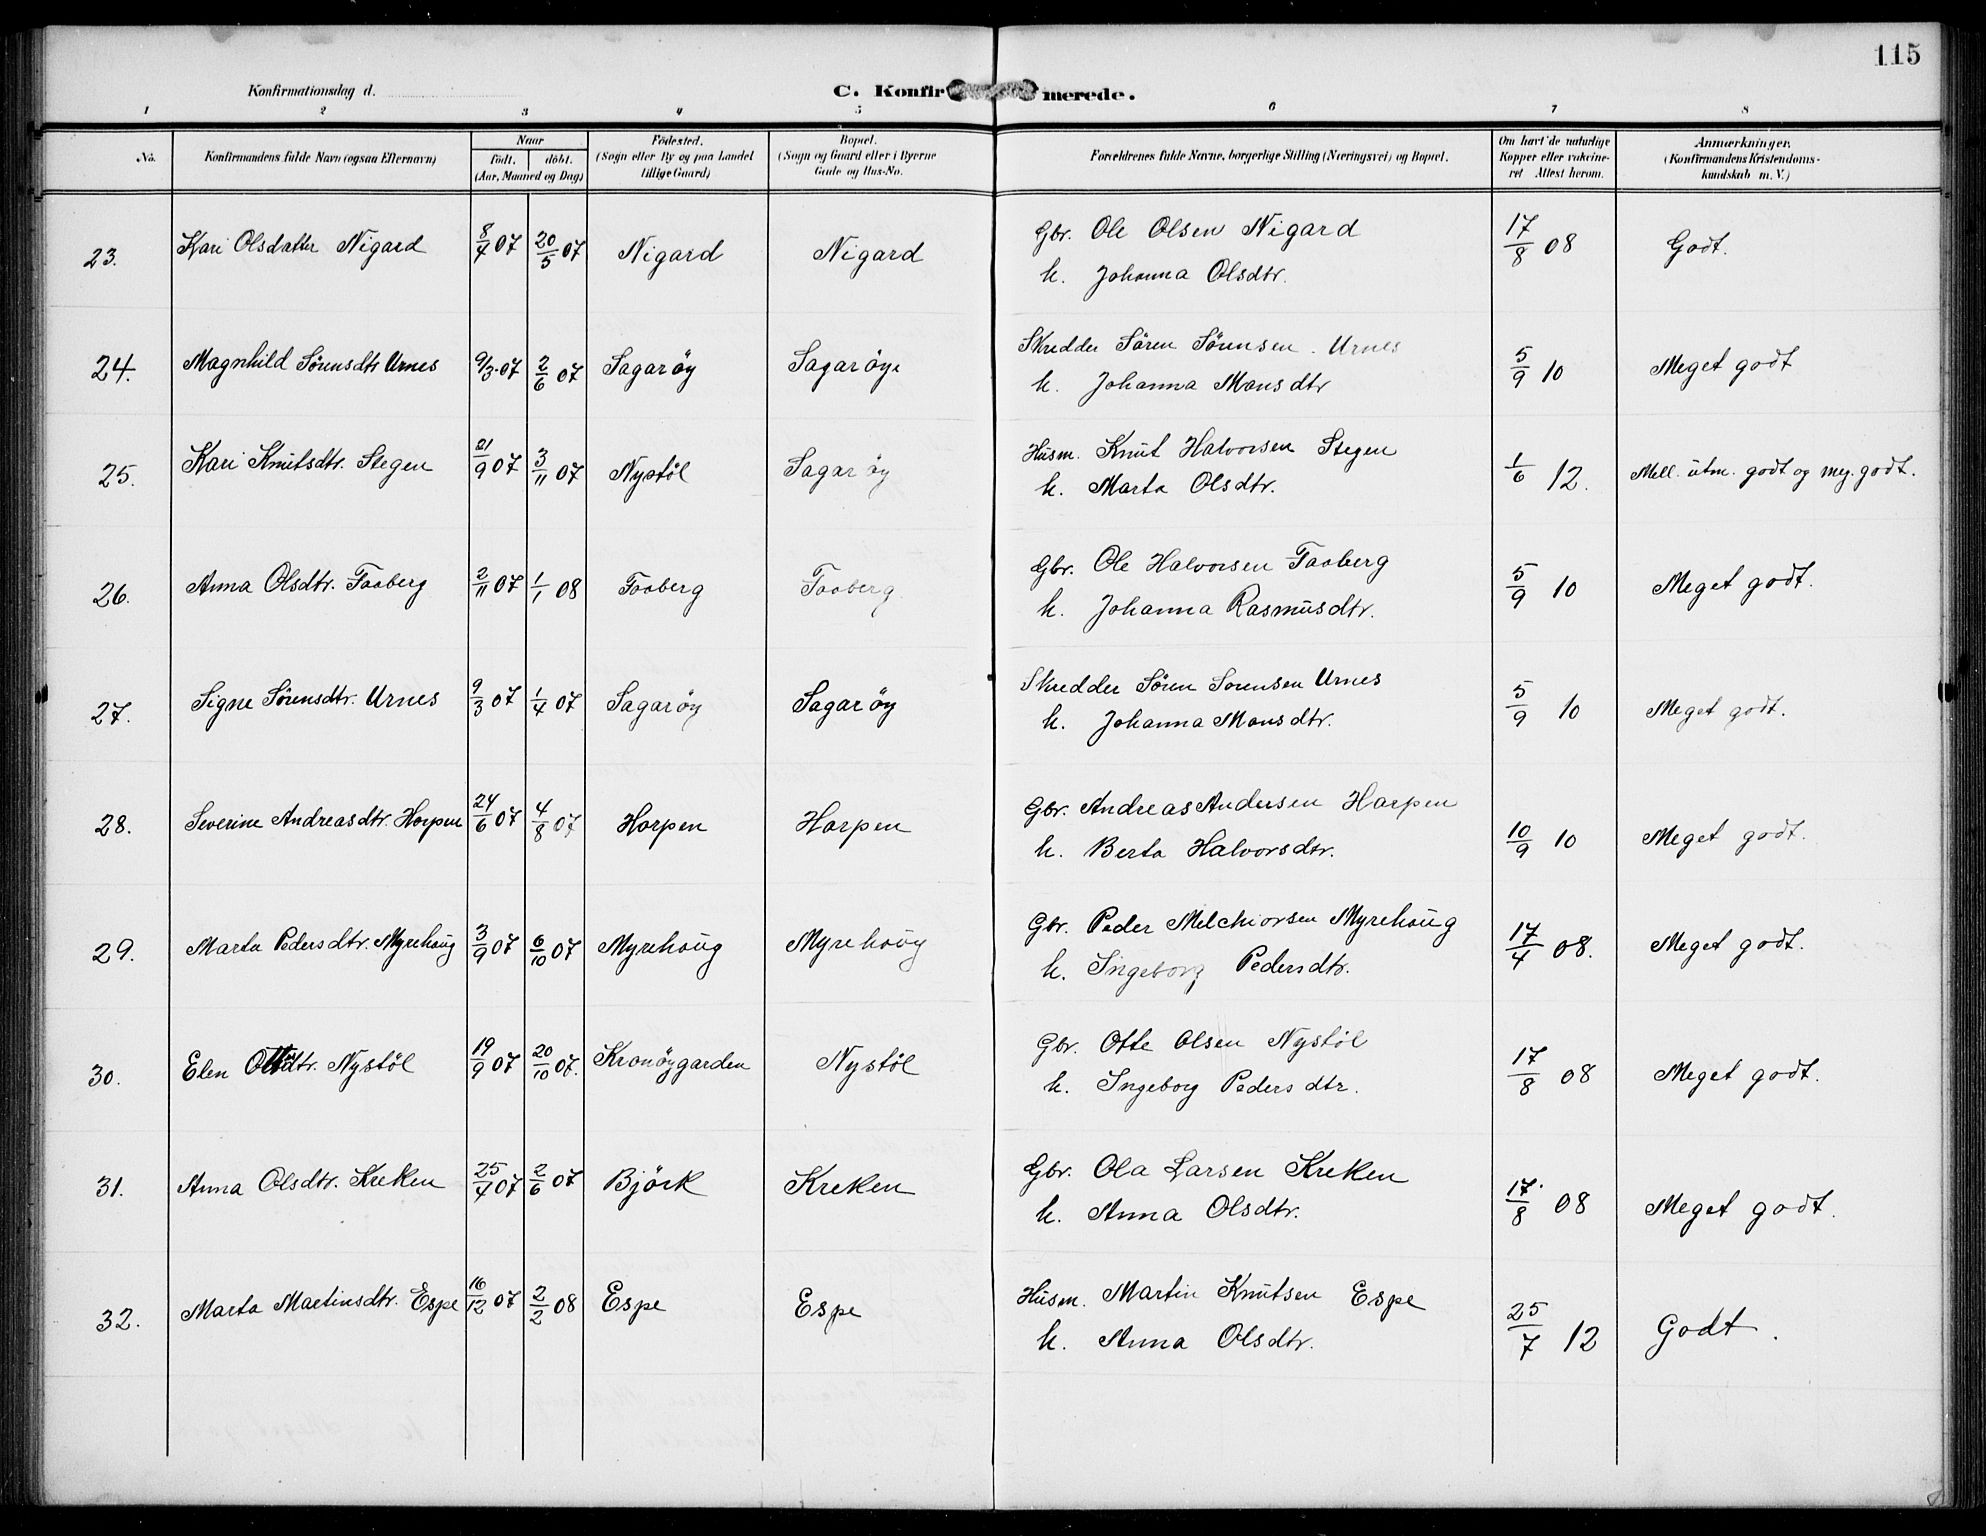 115
Konfirmationsdag d.
C. Konfirmerede.
1 2 3 4 5 6 7 8
No. Konfirmandens fulde Navn (ogsaa Efternavn) Naar födt. döbt. (Aar, Maaned og Dag) Födested. (Sogn eller By og paa Landet tillige Gaard) Bopæl. (Sogn og Gaard eller i Byerne Gade og Hus-No. Forældrenes fulde Navne, borgerlige Stilling (Næringsvei) og Bopæl. Om havt de naturlige Kopper eller vakcineret Attest herom. Anmærkninger. (Konfirmandens Kristendomskundskab m. V.)
23. Kari Olsdatter Nigard 8/4 07 20/5 07 Nigard Nigard Gbr. Ole Olsen Nigard 17/8 08 Godt.
h. Johanna Olsdtr.
24. Magnhild Sørensdtr Urnes 9/3 07 2/6 07 Sagarøy Sagarøy Skredder Sören Sørensen. Urnes 5/9 10 Meget godt
h. Johanna Monsdtr
25. Kari Knutsdtr. Stegen 21/9 07 3/11 07 Nystøl Sagarøy Husm. Knut Halvorsen Stegen 1/6 12. Mell. utm. godt og meg. godt.
h. Marta Olsdtr.
26. Anna Olsdtr. Faaberg 2/11 07 1/1 08 Faaberg Faaberg Gbr. Ole Halvorsen Faaberg 5/9 10 Meget godt.
h. Johanna Rasmusdtr.
27. Signe Sørensdtr. Urnes 9/3 07 1/4 07 Sagarøy Sagarøy Skredder Søren Sorensen Urnes 5/9 10 Meget godt.
h. Johanna Monsdtr.
28. Severine Andreasdtr. Horpen 24/6 07 4/8 07 Horpen Horpen Gbr. Andreas Andersen Horpen 10/9 10 Meget godt.
h. Berta Halvorsdtr.
29. Marta Pedersdtr. Myrehaug 3/9 07 6/10 07 Myrehaug Myrehoug Gbr. Peder Melchiorsen Myrehoug 17/4 08. Meget godt.
h. Ingeborg Pedersdtr.
30. Elen Ottisdtr. Nystøl 19/9 07 20/10 07. Kronøygarden Nystøl Gbr. Otte Olsen Nystøl 17/8 08 Meget godt.
h. Ingeborg Pedersdtr.
31. Anna Olsdtr. Kreken 25/4 07 2/6 07 Björk Kreken Gbr. Ola Larsen Kreken 17/8 08 Meget godt.
h. Anna Olsdtr.
32. Marta Martinsdtr. Espe 16/12 07 2/2 08 Espe Espe Husm. Martin Knutsen Espe 25/7 12 Godt.
h. Anna Olsdtr.